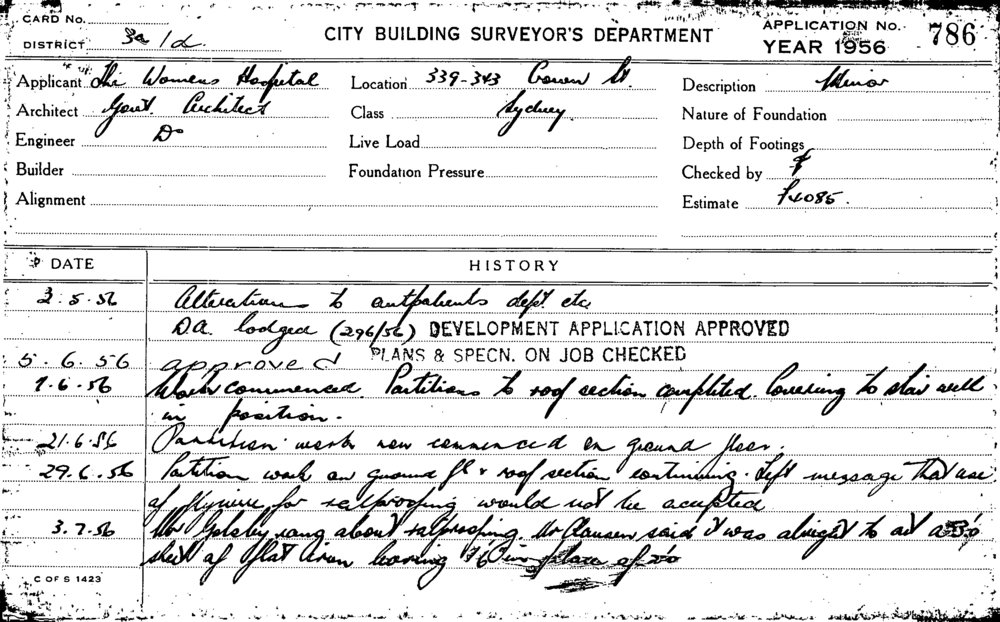 CARD No.
DISTRICT 3a/d.
CITY BUILDING SURVEYOR'S DEPARTMENT
APPLICATION No. 786
YEAR 1956
Applicant The Womens Hospital
Architect Govt. Architect
Engineer Do
Builder
Alignment
Location 339-343 Crown St.
Class Sydney.
Live Load
Foundation Pressure
Description Minor
Nature of Foundation
Depth of Footings
Checked by
Estimate £4085.
DATE HISTORY
3.5.56 Alterations to outpatients dept etc
D.A. lodged (296/56) DEVELOPMENT APPLICATION APPROVED
5.6.56 approved PLANS & SPECN. ON JOB CHECKED
7.6.56 Work commenced. Partitions to roof section completed. Covering to stair well
in position.
21.6.56 Partition work now commenced on ground floor.
29.6.56 Partition work on ground fl & roof section continuing. Left message that use
of flywire for ratproofing would not be accepted
3.7.56 Mr Golsby rang about ratproofing. Mr Clausen said it was alright to
sheet of flat iron having in place of
C OF S 1423